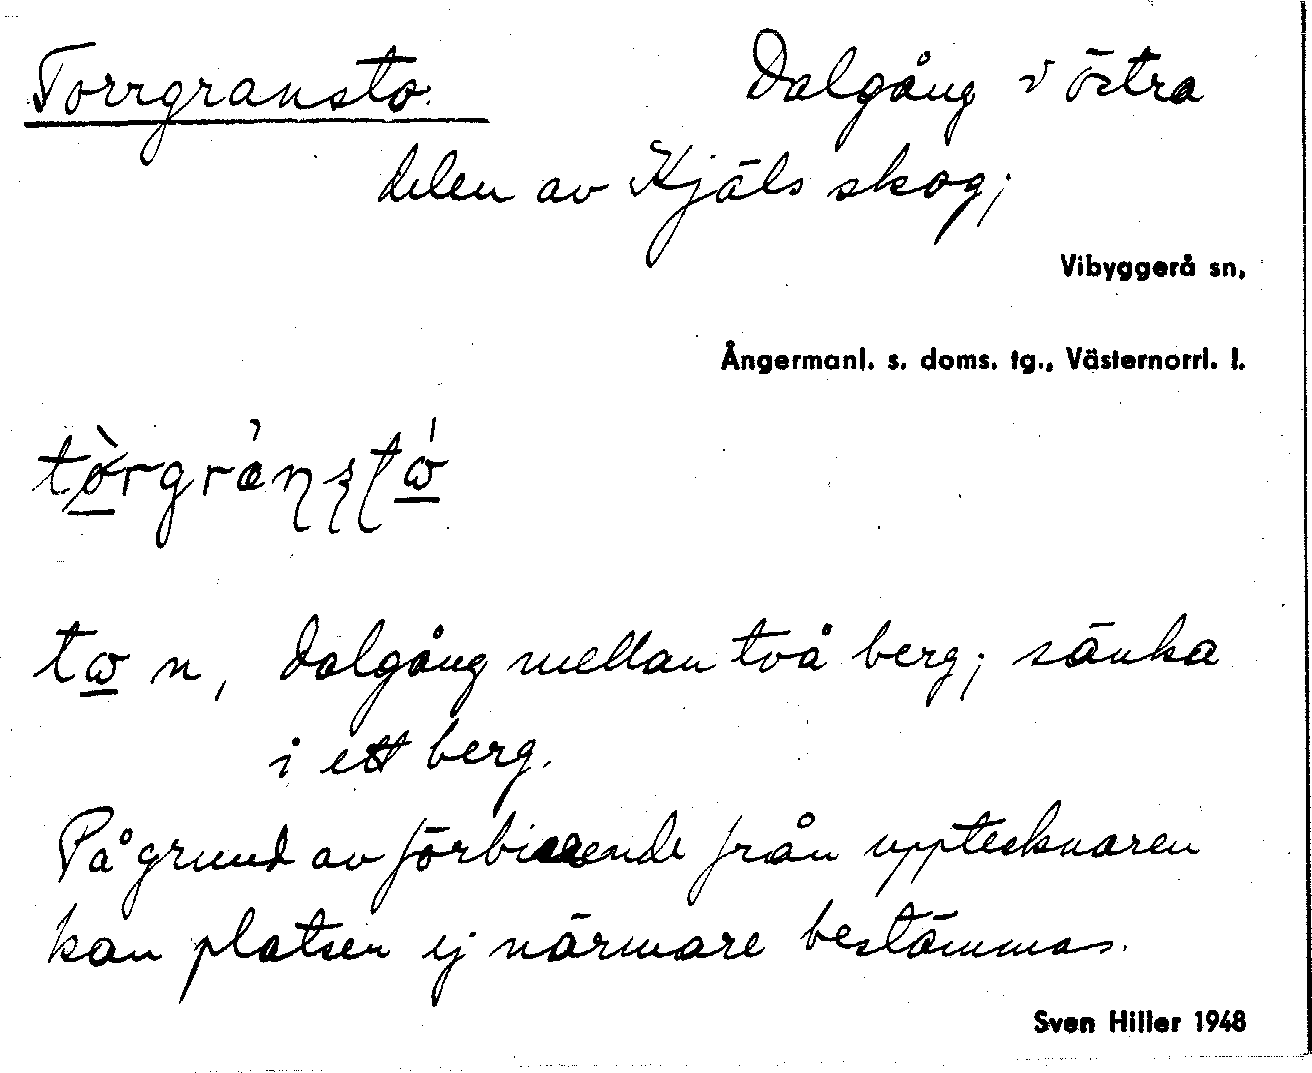 Torrgransto. Dalgång i östra
delen av Kjäls skog;
Vibyggerå sn,
Ångermanl. s. doms. tg., Västernorrl. l.
tɷ n, dalgång mellan två berg; sänka
i ett berg.
På grund av förbiseende från upptecknaren
kan platsen ej närmare bestämmas.
Sven Hiller 1948